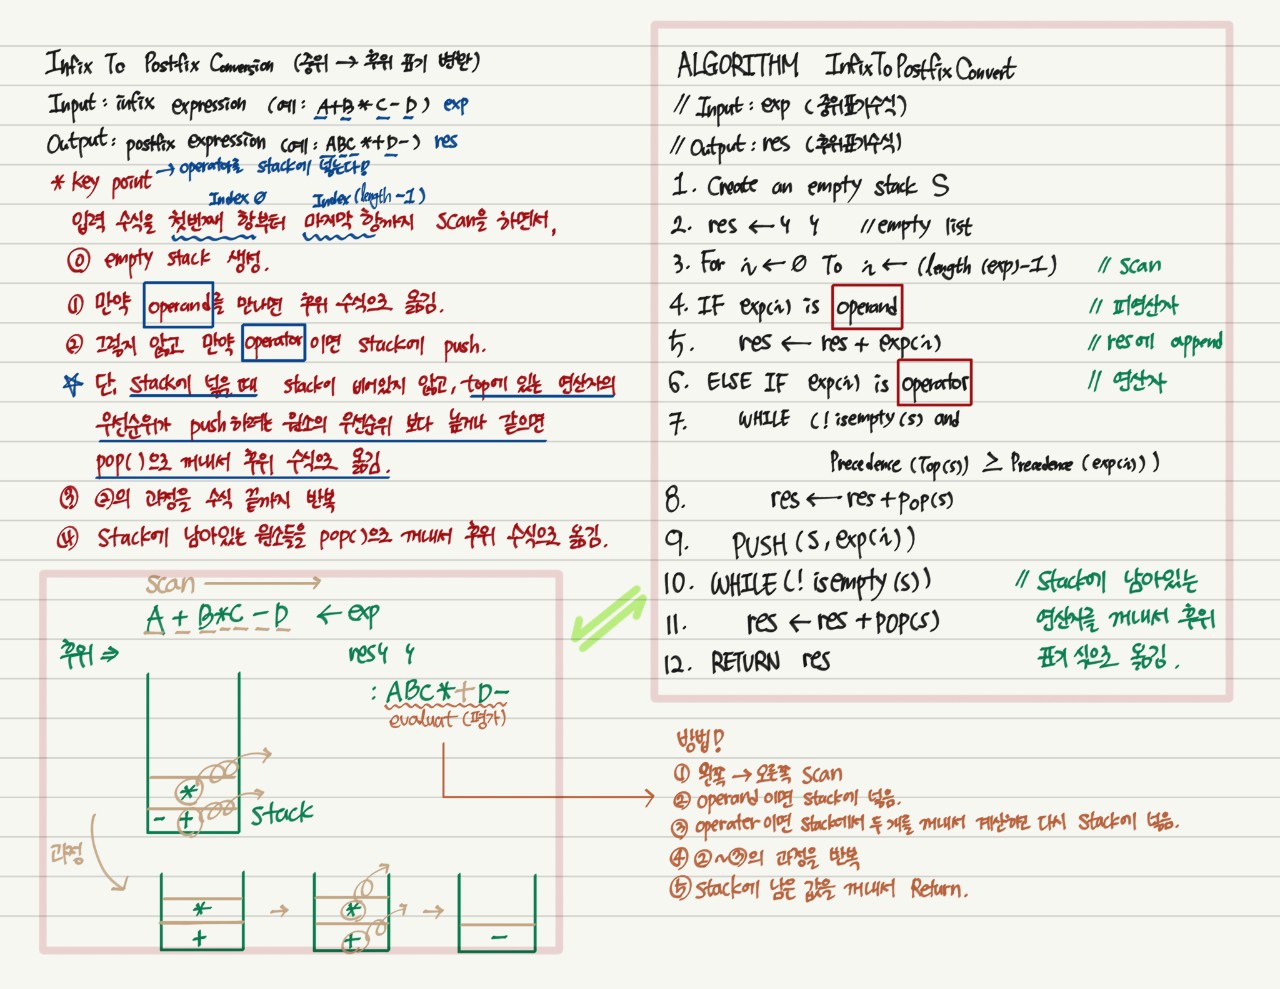 Infix To Postfix Conversion (중위 → 후위 표기 변환)
Input : infix expression (예: A+B*C-D) exp
Output : postfix expression (예: ABC*+D-) res
* key point → operator를 stack에 넣는다!
Index 0 Index(length-1)
입력 수식을 첫번째 항부터 마지막 항까지 Scan을 하면서,
⓪ empty stack 생성.
① 만약 operand를 만나면 후위 수식으로 옮김.
② 그렇지 않고 만약 operator이면 stack에 push.
☆ 단, stack에 넣을 때 stack이 비어있지 않고, top에 있는 연산자의
우선순위가 push하려는 원소의 우선순위 보다 높거나 같으면
pop()으로 꺼내서 후위 수식으로 옮김.
③ ②의 과정을 수식 끝까지 반복
④ Stack에 남아있는 원소들을 pop()으로 꺼내서 후위 수식으로 옮김.
scan →
A + B*C - D ← exp
후위 ⇒ res{ }
: ABC*+D-
evaluat (평가)
*
- +
stack
과정
* → * →
+ + -
ALGORITHM InfixToPostfixConvert
// Input : exp (중위표기수식)
// Output : res (후위표기수식)
1. Create an empty stack S
2. res ← { } //empty list
3. For i ← 0 To i ← (length (exp)-1) // scan
4. IF exp(i) is operand // 피연산자
5. res ← res + exp(i) // res에 append
6. ELSE IF exp(i) is operator // 연산자
7. WHILE (! isempty(s) and
Precedence (Top(s)) ≥ Precedence (exp(i)))
8. res ← res + pop(s)
9. PUSH (S, exp(i))
10. WHILE (! isempty(s)) // Stack에 남아있는
11. res ← res + POP(s) 연산자를 꺼내서 후위
12. RETURN res 표기 식으로 옮김.
방법!
① 왼쪽 → 오른쪽 Scan
② operand 이면 stack에 넣음.
③ operater이면 stack에서 두개를 꺼내서 계산하고 다시 Stack에 넣음.
④ ②~③의 과정을 반복
⑤ stack에 남은 값을 꺼내서 Return.